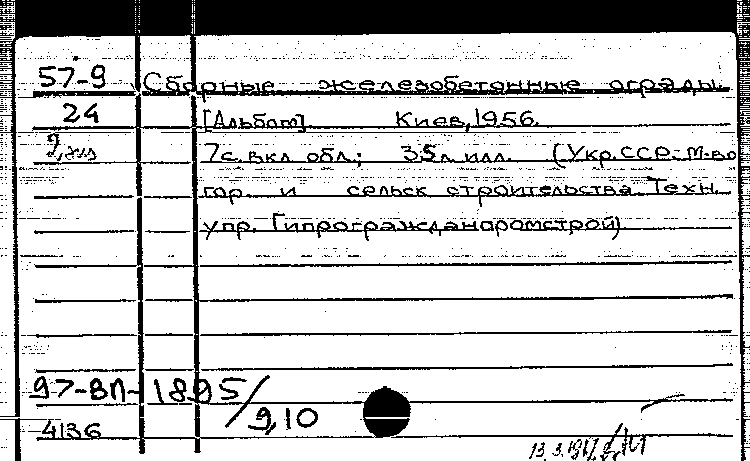 57-9 Сборные железобетонные ограды.
24 [Альбом] Киев, 1956.
7с. вкл обл.; 35л илл. (Укр.ССР. М-во
гор. и сельск строительства Техн.
упр. Гипрогражданпромстрой)
97-ВП-1895/9,10
4136